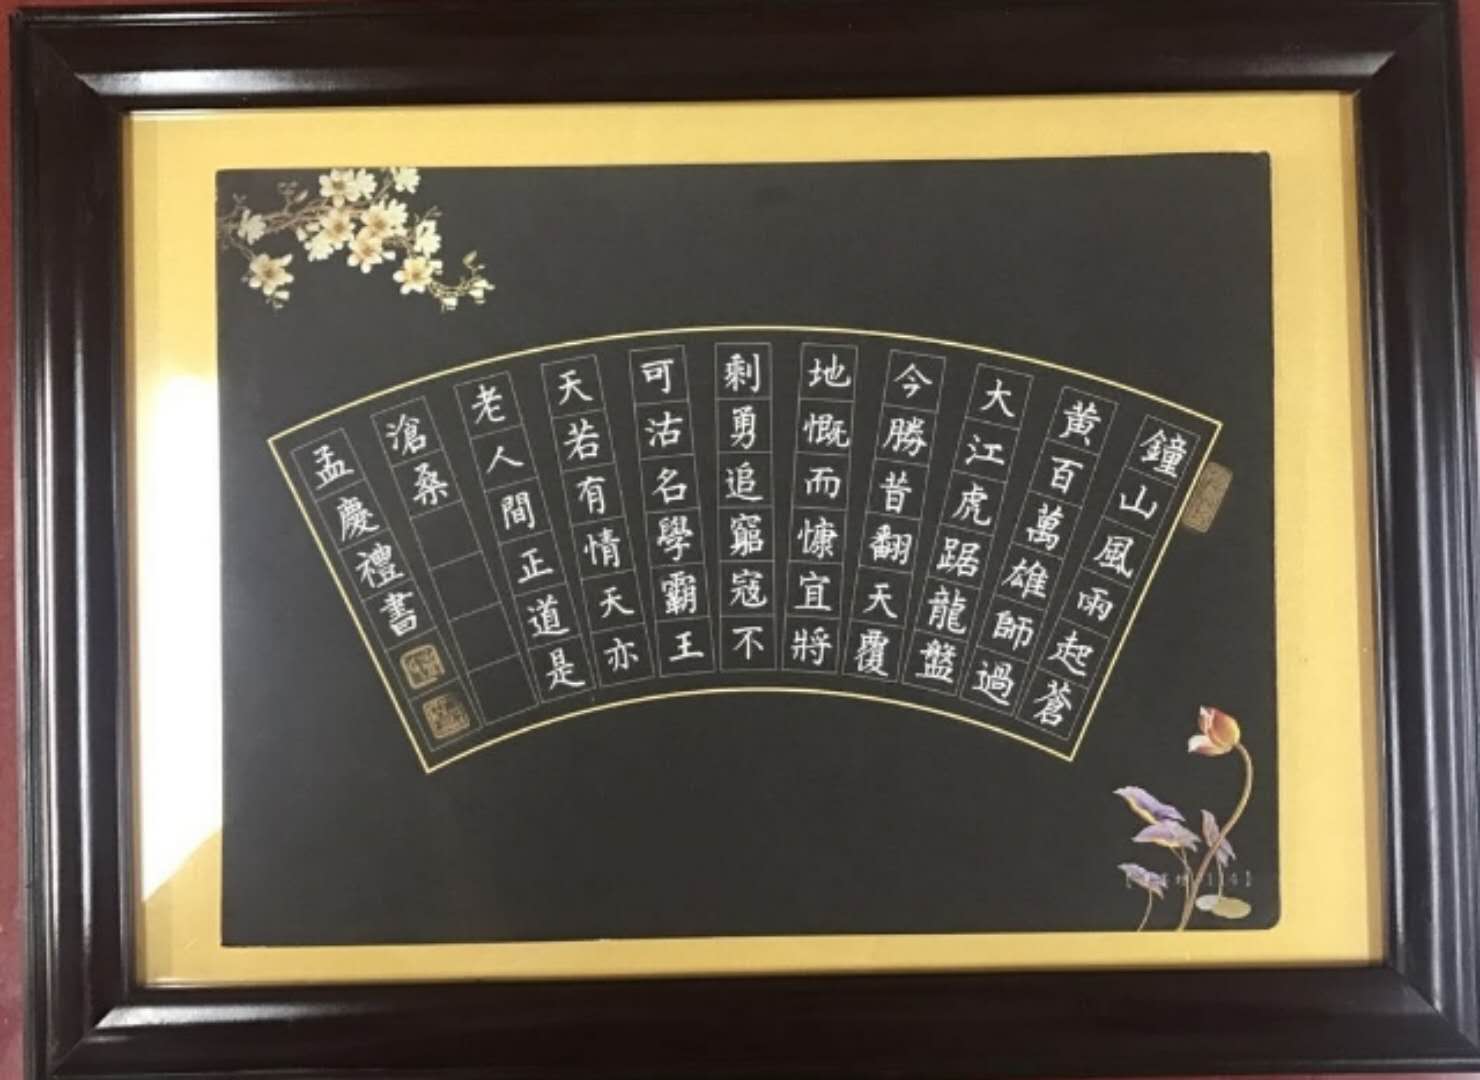 鐘山風雨起蒼
黃百萬雄師過
大江虎踞龍盤
今勝昔翻天覆
地慨而慷宜將
剩勇追窮寇不
可沽名學霸王
天若有情天亦
老人間正道是
滄桑
孟慶禮書